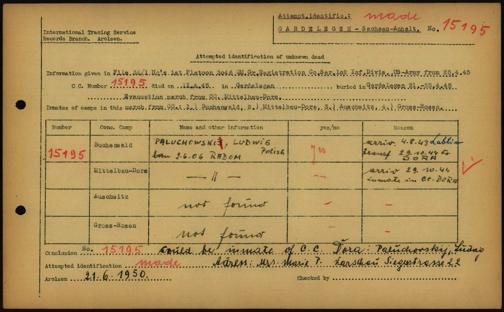 International Tracing Service
Records Branch. Arolsen.
Attempt.identific.: made
GARDELEGEN - Sachsen-Anhalt. No. 15195
Attempted identification of unknown dead
Information given in File 1st Platoon Registration Co. 1st Inf.Divis. US-Army from 20.4.45
C.C. Number 15195 died on in Gardelegen buried in Gardelegen
Evacuation march from CC. Mittelbau-Dora.
Inmates of camps in this march from CC.: 1.) Buchenwald, 2.) Mittelbau-Dora, 3.) Auschwitz, 4.) Gross-Rosen.
Number Conc. Camp Name and other information yes/no Remarks
15195 Buchenwald PALUCHOWSKI, LUDWIG yes arriv. 4.8.43 Lublin
born 26.06 RADOM Polish transf. 29.10.44 to DORA
Mittelbau-Dora — " — — arriv 29.10.44
inmate in CC. DORA
Auschwitz not found —
Gross-Rosen not found —
Conclusion No. 15195 could be inmate of C.C. Dora: Paluchovsky, Ludwig
Attempted identification made Adress: Mrs. Marie P. Warschau Siegesstrasse 22
Arolsen 21.6.1950. Checked by